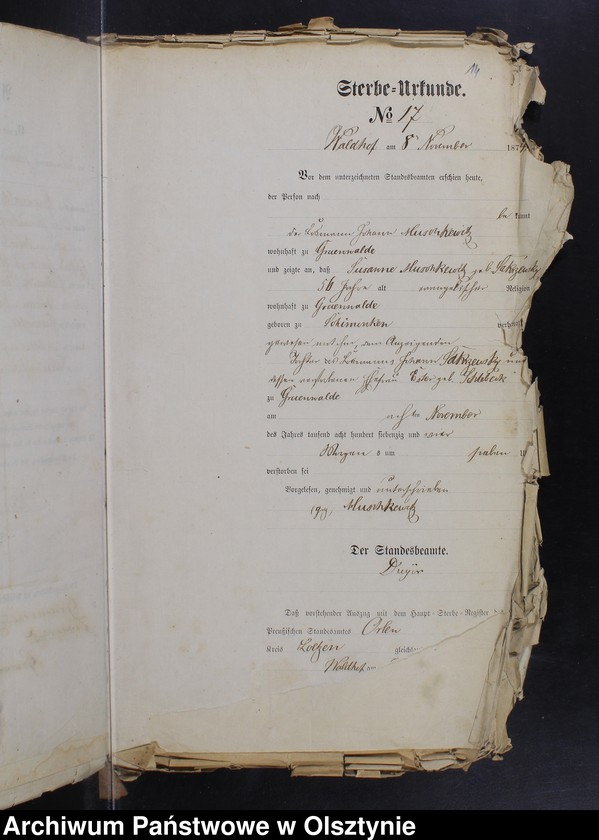 14
Sterbe-Urkunde.
No 17
Waldhof am 8 November 1874
Vor dem unterzeichneten Standesbeamten erschien heute,
der Person nach
be kannt
der Losmann Johann Muschkewitz
wohnhaft zu Gruenwalde
und zeigte an, daß Susanne Muschkewitz geb.
Jahre alt evangelischer Religion
wohnhaft zu Gruenwalde
geboren zu Schimonken verheira
gewesen mit ihm, dem Anzeigenden
Tochter des Losmanns Johann und
dessen verstorbenen Ehefrau Ester geb.
zu Gruenwalde
am acht November
des Jahres tausend acht hundert siebenzig und vier
Morgens um sieben
verstorben sei
Vorgelesen, genehmigt und unterschrieben
(gz) Muschkewitz
Der Standesbeamte.
Daß vorstehender Auszug mit dem Haupt-Sterbe-Register des
Preußischen Standesamtes Orlen
Kreis Loetzen gleichs
Waldhof am
Archiwum Państwowe w Olsztynie